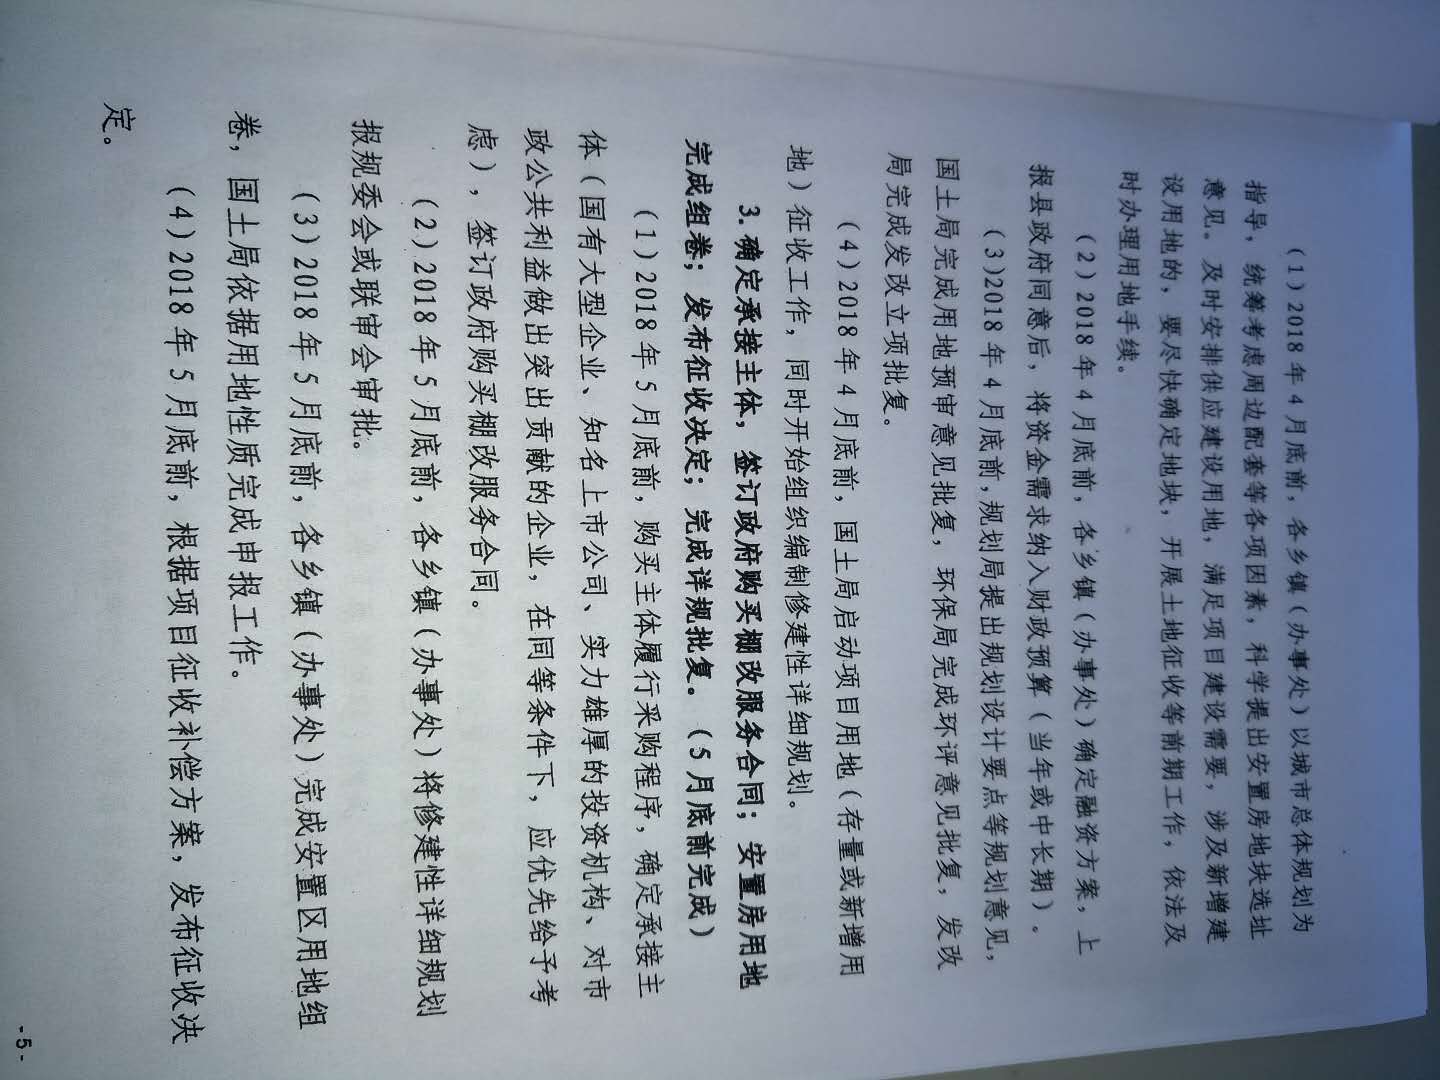 （1）2018 年 4 月底前，各乡镇（办事处）以城市总体规划为
指导，统筹考虑周边配套等各项因素，科学提出安置房地块选址
意见。及时安排供应建设用地，满足项目建设需要，涉及新增建
设用地的，要尽快确定地块，开展土地征收等前期工作，依法及
时办理用地手续。
（2）2018 年 4 月底前，各乡镇（办事处）确定融资方案，上
报县政府同意后，将资金需求纳入财政预算（当年或中长期）。
（3)2018 年 4 月底前,规划局提出规划设计要点等规划意见,
国土局完成用地预审意见批复，环保局完成环评意见批复，发改
局完成发改立项批复。
（4）2018 年 4 月底前，国土局启动项目用地（存量或新增用
地）征收工作，同时开始组织编制修建性详细规划。
3.确定承接主体，签订政府购买棚改服务合同；安置房用地
完成组卷；发布征收决定；完成详规批复。（5 月底前完成）
（1）2018 年 5 月底前，购买主体履行采购程序，确定承接主
体（国有大型企业、知名上市公司、实力雄厚的投资机构、对市
政公共利益做出突出贡献的企业，在同等条件下，应优先给予考
虑），签订政府购买棚改服务合同。
（2）2018 年 5 月底前，各乡镇（办事处）将修建性详细规划
报规委会或联审会审批。
（3）2018 年 5 月底前，各乡镇（办事处）完成安置区用地组
卷，国土局依据用地性质完成申报工作。
（4）2018 年 5 月底前，根据项目征收补偿方案，发布征收决
定。
- 5 -